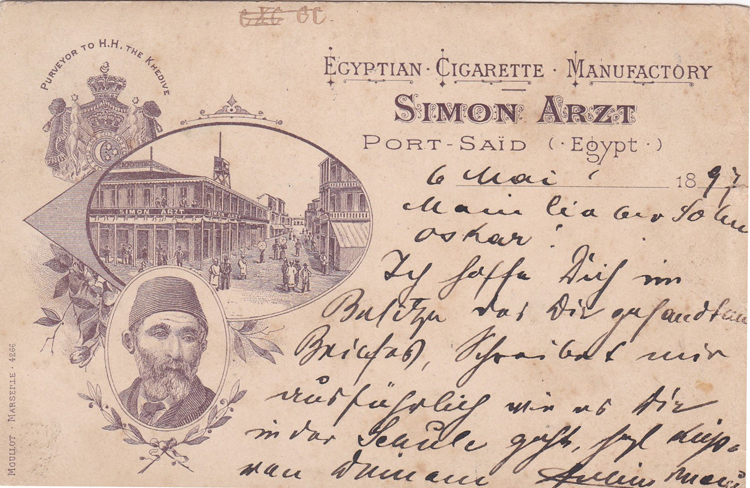 GC.
PURVEYOR TO H.H. THE KHEDIVE
EGYPTIAN · CIGARETTE · MANUFACTORY
SIMON ARZT
PORT-SAÏD (·Egypt·)
6 Mai 1897
SIMON ARZT
Mein lieber Sohn
Oskar!
Ich hoffe Dich im
Besitze des Dir gesandten
Briefes, Schreibe mir
ausführlich wie es Dir
in der Schule geht,
von Deinem
MOULLOT · MARSEILLE · 4266